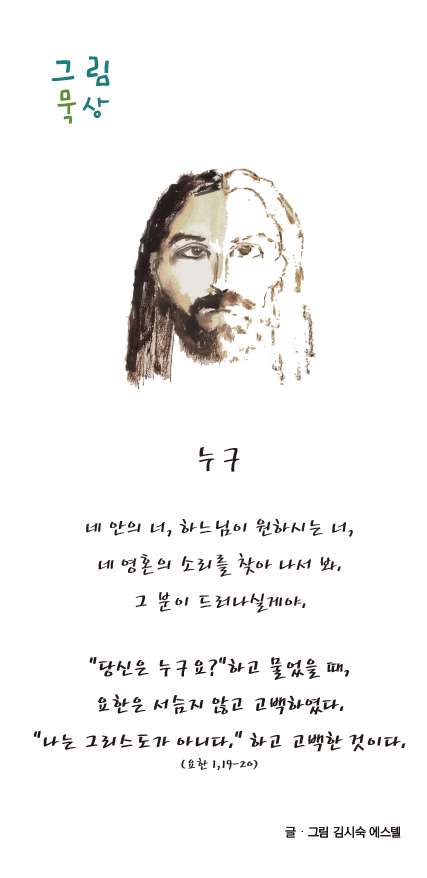 그림
묵상
누구
네 안의 너, 하느님이 원하시는 너,
네 영혼의 소리를 찾아 나서 봐.
그 분이 드러나실게야.
"당신은 누구요?"하고 물었을 때,
요한은 서슴지 않고 고백하였다.
"나는 그리스도가 아니다." 하고 고백한 것이다.
(요한 1,19-20)
글 · 그림 김시숙 에스텔